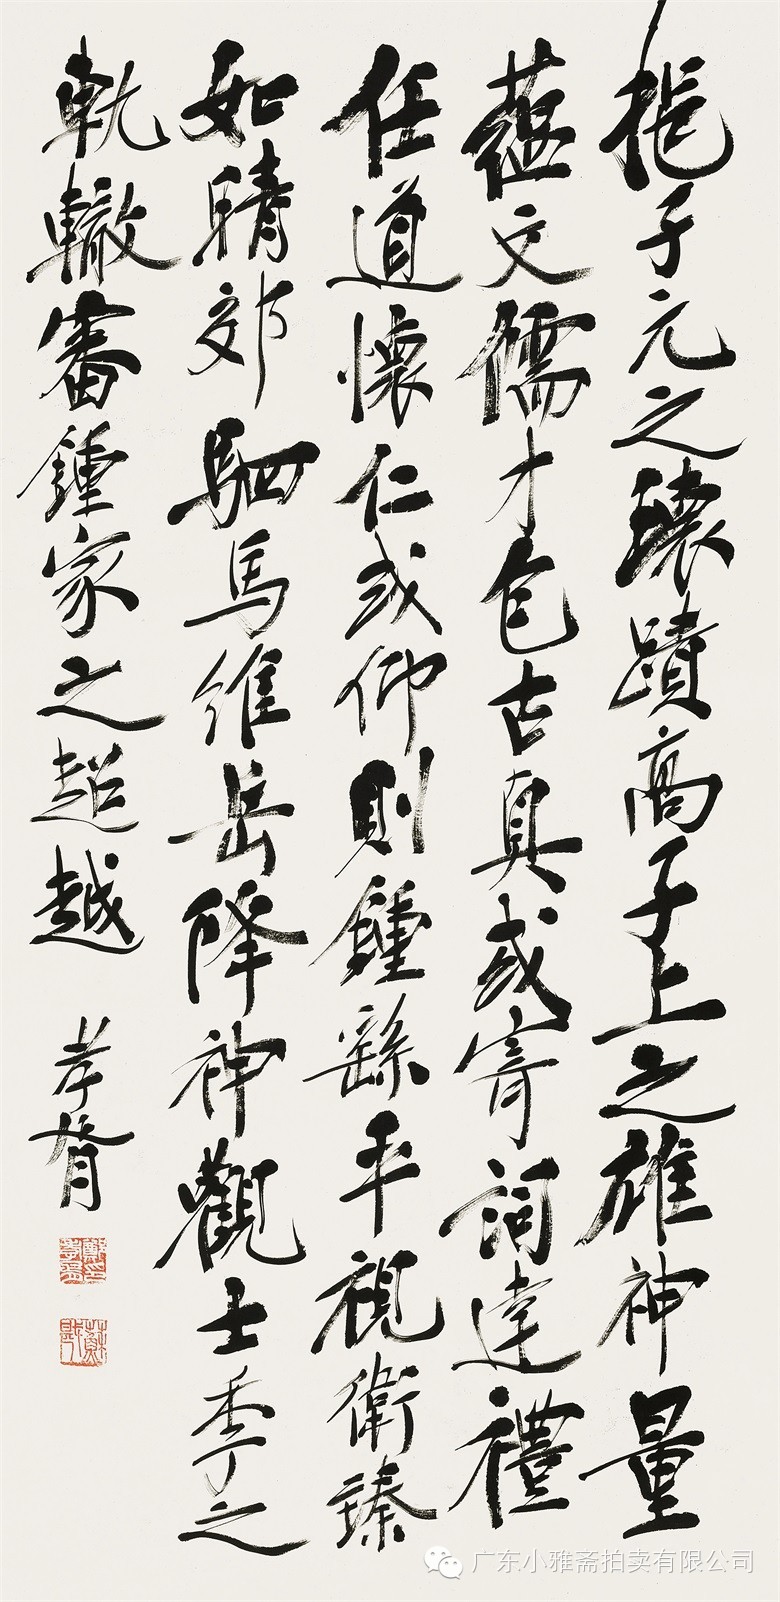 挹子元之瓌蹟高子上之雄神量
蕴文儒才包古真或寄词達禮
任道懷仁或仰則鍾繇平視衛臻
如晴郊駟馬維岳降神觀士季之
軌轍審鍾家之超越
孝胥
廣东小雅斋拍卖有限公司